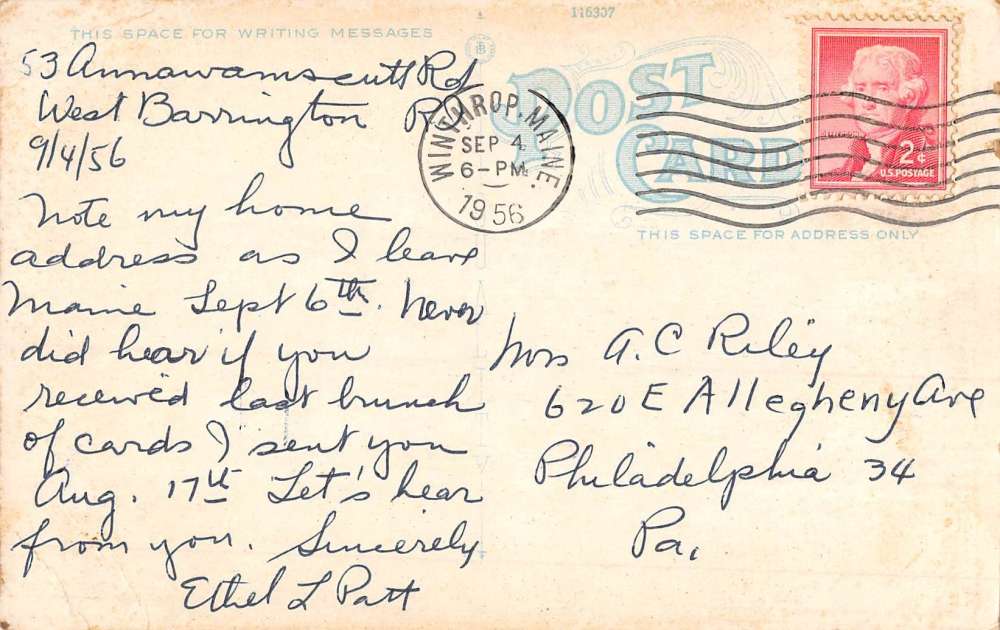 116307
THIS SPACE FOR WRITING MESSAGES
POST
CARD
THIS SPACE FOR ADDRESS ONLY
WINTHROP, MAINE.
SEP 4
6-PM
1956
2¢
U.S. POSTAGE
53 Annawamscutt Rd
West Barrington R.I.
9/4/56
Note my home
address as I leave
Maine Sept 6th. Never
did hear if you
received last brunch
of cards I sent you
Aug. 17th Let's hear
from you. Sincerely
Ethel L Patt
Mrs A. C Riley
620 E Allegheny Ave
Philadelphia 34
Pa.